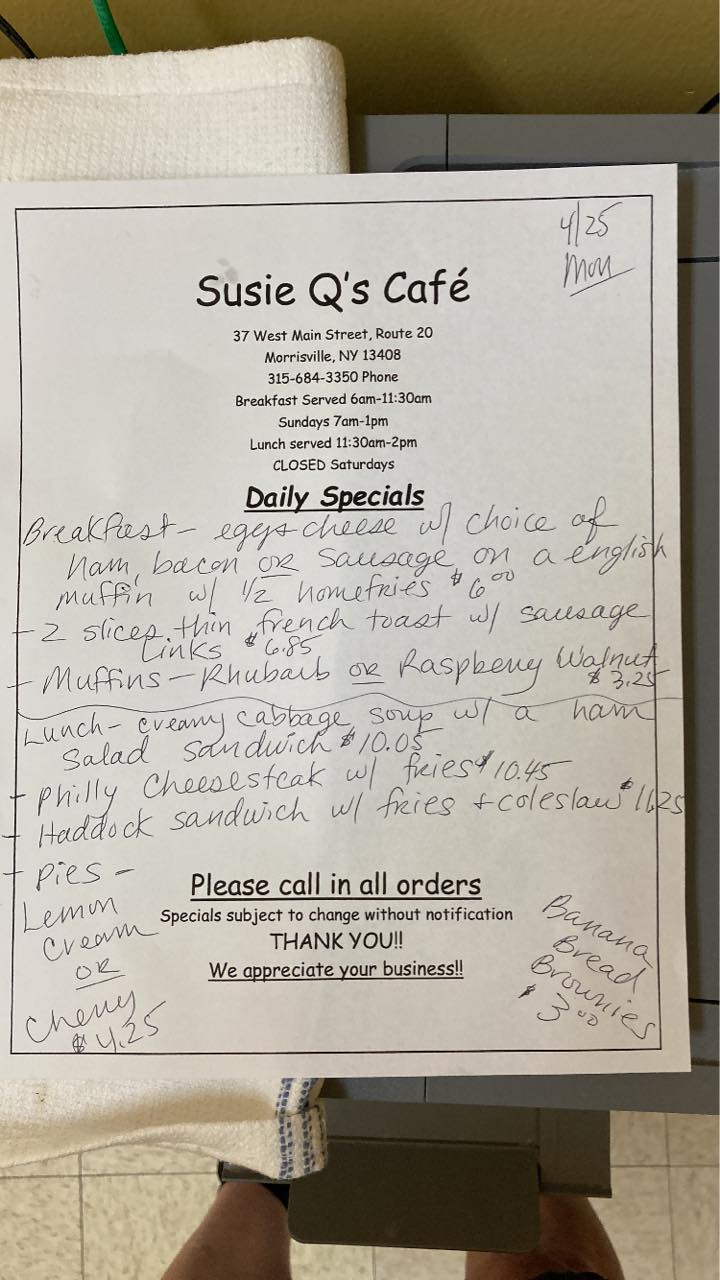 4/25
Mon
Susie Q's Café
37 West Main Street, Route 20
Morrisville, NY 13408
315-684-3350 Phone
Breakfast Served 6am-11:30am
Sundays 7am-1pm
Lunch served 11:30am-2pm
CLOSED Saturdays
Daily Specials
Breakfast - egg+cheese w/ choice of
ham, bacon OR sausage on a english
muffin w/ 1/2 homefries $6.00
- 2 slices thin french toast w/ sausage
links $6.85
- Muffins - Rhubarb OR Raspberry Walnut
$3.25
Lunch - creamy cabbage soup w/ a ham
salad sandwich $10.05
- Philly Cheesesteak w/ fries $10.45
- Haddock sandwich w/ fries + coleslaw $11.25
- Pies -
Lemon
Cream
OR
Cherry
$4.25
Please call in all orders
Specials subject to change without notification
THANK YOU!!
We appreciate your business!!
Banana
Bread
Brownies
$3.00